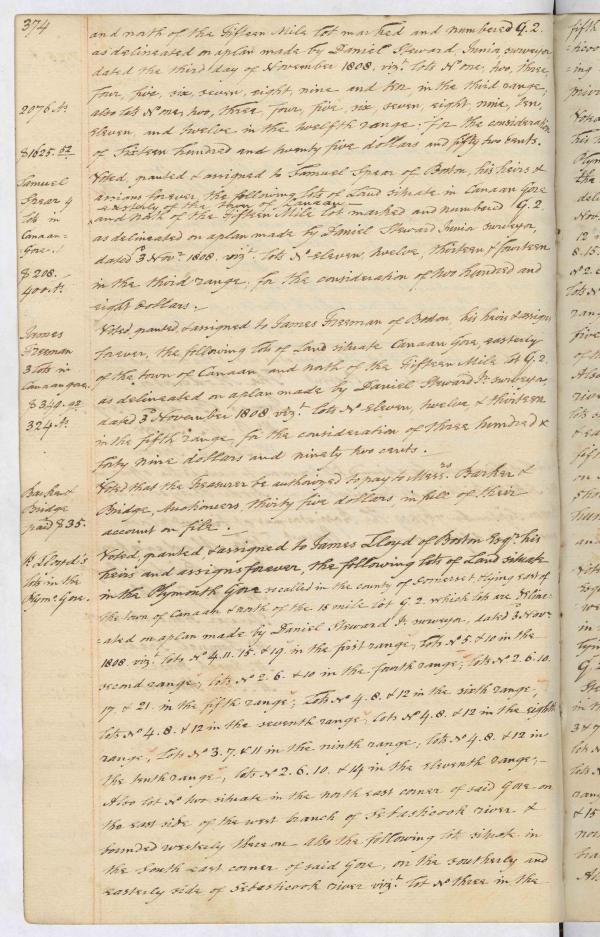 374
and north of the Fifteen Mile lot marked and numbered G.2.
as delineated on a plan made by Daniel Steward, Junir surveyor
dated the third day of November 1808. vizt. lots No one, two, three,
four, five, six, seven, eight, nine and ten in the third range;
2076 As.
also lots No one, two, three, four, five, six, seven, eight, nine, ten,
eleven, and twelve in the twelfth range: for the consideration
$1625.52
of Sixteen hundred and twenty five dollars and fifty two cents.
Samuel
Spear 4
lots in
Canaan
Gore.
$208.
400 As.
Voted, granted & assigned to Samuel Spear of Boston, his heirs &
assigns forever, the following lots of Land situate in Canaan Gore
easterly of the town of Canaan
and north of the Fifteen Mile lot marked and numbered G.2
as delineated on a plan made by Daniel Steward Junir surveyor,
dated 3d Novr. 1808. vizt. lots No eleven, twelve, thirteen & fourteen
in the third range. for the consideration of two hundred and
eight dollars.
James
Freeman
3 lots in
Canaan gore.
$349.92
324 As.
Voted, granted, & assigned to James Freeman of Boston, his heirs & assigns
forever, the following lots of Land situate Canaan Gore, easterly
of the town of Canaan, and north of the Fifteen Mile lot G.2.
as delineated on a plan made by Daniel Steward Jr. surveyor,
dated 3d November 1808 vizt. lots No eleven, twelve & thirteen
in the fifth range, for the consideration of three hundred &
forty nine dollars and ninety two cents.
Barker &
Bridge
paid $35.
Voted that the Treasurer be authorized to pay to Messrs. Barker &
Bridge, Auctioneers, thirty five dollars in full of their
account on file.
Lloyd's
lots in the
Plymo. Gore.
Voted, granted & assigned to James Lloyd of Boston Esqr. his
heirs and assigns forever, the following lots of Land situate
in the Plymouth Gore so called in the county of Somerset & lying east of
the town of Canaan & north of the 15 mile lot G.2. which lots are deline-
-ated on a plan made by Daniel Steward Jr. surveyor, dated 3d Novr.
1808. vizt. lots No 4. 11. 15. & 19. in the first range; Lots No 5. & 10 in the
second range; lots No 2. 6. & 10 in the fourth range; lots No 2. 6. 10.
17 & 21. in the fifth range; Lots No 4. 8. & 12 in the sixth range;
lots No 4. 8. & 12 in the seventh range; lots No 4. 8. & 12 in the eighth
range; Lots No 3. 7. & 11 in the ninth range; lots No 4. 8. & 12 in
the tenth range; lots No 2. 6. 10. & 14 in the eleventh range;-
Also lot No two situate in the north east corner of said Gore on
the east side of the west branch of Sebasticook river &
bounded westerly thereon - also the following lots situate in
the South east corner of said Gore, on the southerly and
easterly side of Sebasticook river vizt. lot No three in the